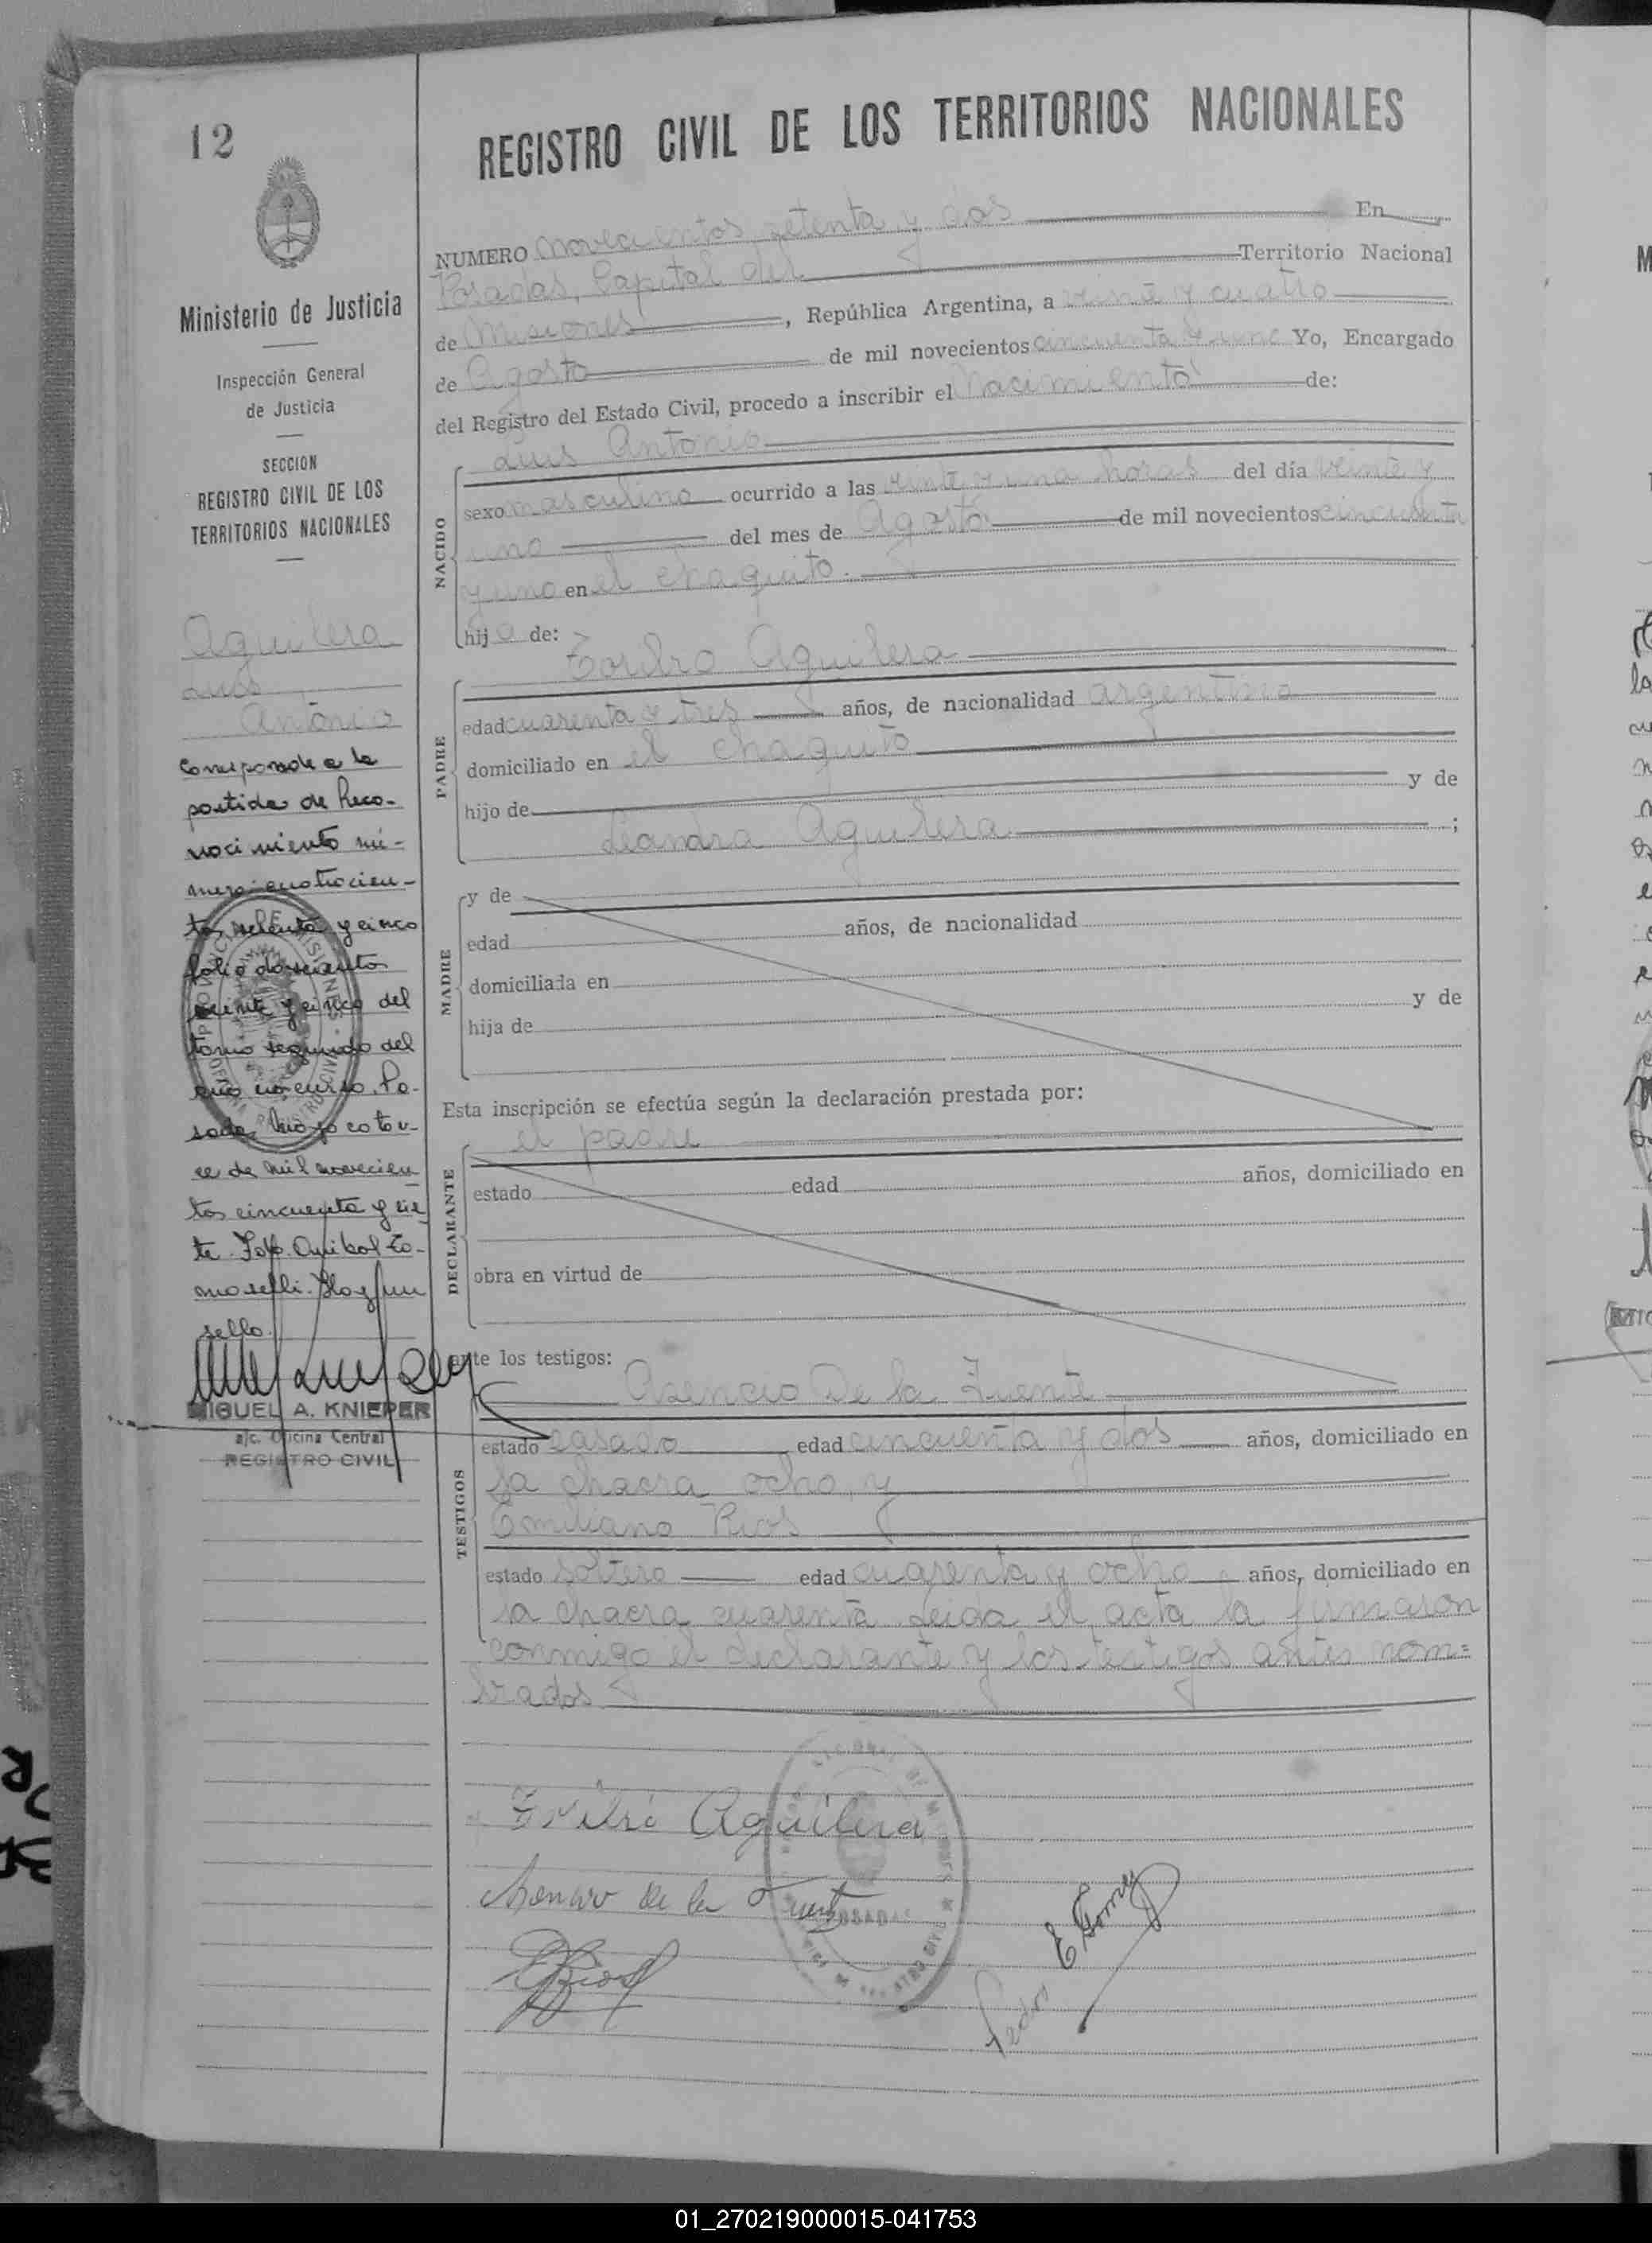 12
REGISTRO CIVIL DE LOS TERRITORIOS NACIONALES
Ministerio de Justicia
Inspección General
de Justicia
SECCION
REGISTRO CIVIL DE LOS
TERRITORIOS NACIONALES
Aguilera
Luis
Antonio
Corresponde a la
partida de Reco-
nocimiento nú-
mero cuatrocien-
tos setenta y cinco
folio doscientos
veinte y cinco del
tomo segundo del
año en curso. Po-
sadas, Mayo cator-
ce de mil novecien
tos cincuenta y sie
te. Fdo. Anibal
Hay un
sello.
MIGUEL A. KNIEPER
a/c. Oficina Central
REGISTRO CIVIL
NUMERO novecientos setenta y dos En
Posadas, Capital del Territorio Nacional
de Misiones, República Argentina, a veinte y cuatro
de Agosto de mil novecientos cincuenta y uno Yo, Encargado
del Registro del Estado Civil, procedo a inscribir el Nacimiento de:
NACIDO
Luis Antonio
sexo masculino ocurrido a las veinte y una horas del día veinte y
uno del mes de Agosto de mil novecientos cincuenta
y uno en el chaquito.
hijo de:
PADRE
Toribio Aguilera
edad cuarenta y tres años, de nacionalidad argentina
domiciliado en el chaquito
hijo de y de
Leandra Aguilera ;
MADRE
y de
edad años, de nacionalidad
domiciliada en
hija de y de
Esta inscripción se efectúa según la declaración prestada por:
el padre
DECLARANTE
estado edad años, domiciliado en
obra en virtud de
ante los testigos:
TESTIGOS
Asencio De la Fuente
estado casado edad cincuenta y dos años, domiciliado en
la chacra ocho, y
Emiliano Rios
estado soltero edad cuarenta y ocho años, domiciliado en
la chacra cuarenta. Leida el acta la firmaron
conmigo el declarante y los testigos antes nom=
brados
Aguilera
de la Fuente
POSADAS
E Rios
Pedro E Gomez
01_270219000015-041753